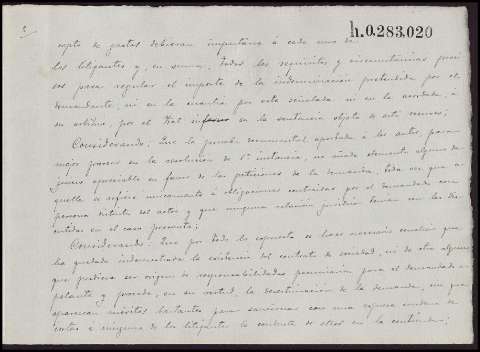 3
h.0.283.020
cepto de gastos debieran imputarse á cada uno de
los litigantes y, en suma, todos los requisitos y circunstancias preci
sos para regular el importe de la indemnización pretendida por el
demandante, ni en la cuantía por este señalada ni en la acordada, á
su arbitrio, por el Tral inferior en la sentencia objeto de este recurso;
Considerando: Que la prueba documental aportada á los autos para
mejor proveer en la apelación de 1ª instancia, no añade elemento alguno de
juicio apreciable en favor de las peticiones de la demanda, toda vez que a
quella se refiere únicamente á obligaciones contraidas por el demandado con
persona distinta del actor y que ninguna relación jurídica tienen con las de
en el caso presente;
Considerando: Que por todo lo expuesto se hace necesario concluir que
ha quedado indemostrada la existencia del contrato de sociedad, ni de otro alguno
que pudiera ser origen de responsabilidades pecuniarias para el demandado a
pelante y procede, en su virtud, la desestimación de la demanda, sin que
aparezcan méritos bastantes para sancionar con una expresa condena de
costas á ninguno de los litigantes la conducta de ellos en la contienda;